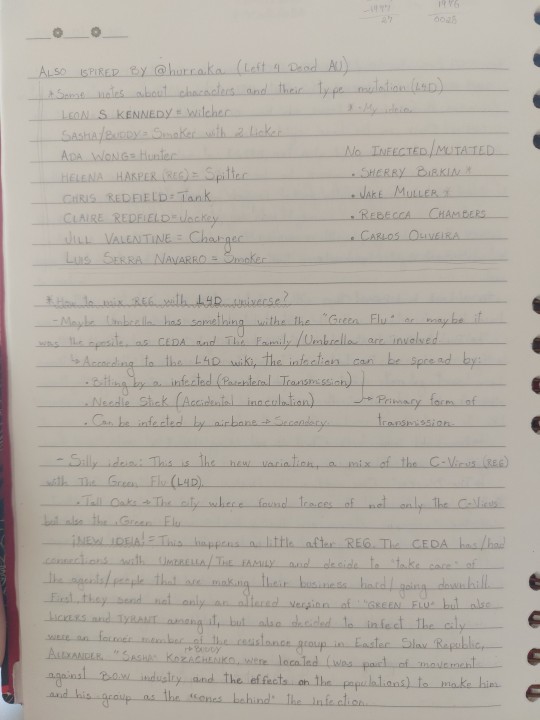 1997 1996
27 0026
ALSO ISPIRED BY @hurraka (Left 4 Dead AU)
* Some notes about characters and their type mutation (L4D)
LEON S KENNEDY = Witcher * - My ideia
SASHA/BUDDY = Smoker with 2 Licker
ADA WONG = Hunter NO INFECTED/MUTATED
HELENA HARPER (RE6) = Spitter • SHERRY BIRKIN *
CHRIS REDFIELD = Tank • JAKE MULLER *
CLAIRE REDFIELD = Jockey • REBECCA CHAMBERS
JILL VALENTINE = Charger • CARLOS OLIVEIRA
LUIS SERRA NAVARRO = Smoker
* How to mix RE6 with L4D universe?
- Maybe Umbrella has something withe the "Green Flu" or maybe it
was the oposite, as CEDA and The Family/Umbrella are involved
↳ According to the L4D wiki, the infection can be spread by:
• Bitting by a infected (Parenteral Transmission)
• Needle Stick (Accidental inoculation) → Primary form of
• Can be infected by airbone → Secondary transmission.
- Silly ideia: This is the new variation, a mix of the C-Virus (RE6)
with The Green Flu (L4D).
• Tall Oaks → The city where found traces of not only the C-Virus
but also the Green Flu
¡NEW IDEIA! = This happens a little after RE6. The CEDA has/had
connections with UMBRELLA/THE FAMILY and decide to "take care" of
the agents/people that are making their business hard/going downhill.
First, they send not only an altered version of "GREEN FLU" but also
LICKERS and TYRANT among it, but also decided to infect the city
were an former member of the resistance group in Easter Slav Republic,
→ BUDDY
ALEXANDER "SASHA" KOZACHENKO were located (was part of movement
against B.O.W industry and the effects on the populations) to make him
and his group as the "ones behind" the infection.